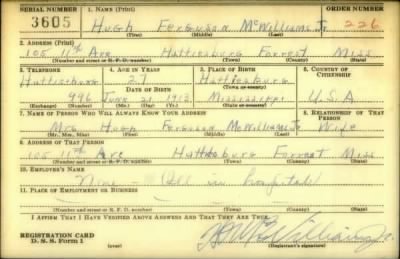 SERIAL NUMBER 1. NAME (Print) ORDER NUMBER
3605 Hugh Ferguson McWilliams Jr 226
(First) (Middle) (Last)
2. ADDRESS (Print)
105 11th Ave Hattiesburg Forrest Miss
(Number and street or R. F. D. number) (Town) (County) (State)
3. TELEPHONE 4. AGE IN YEARS 5. PLACE OF BIRTH 6. COUNTRY OF CITIZENSHIP
Hattiesburg 27 Hattiesburg
DATE OF BIRTH (Town or county)
996 June 21 1913 Mississippi U.S.A
(Exchange) (Number) (Mo.) (Day) (Yr.) (State or country)
7. NAME OF PERSON WHO WILL ALWAYS KNOW YOUR ADDRESS 8. RELATIONSHIP OF THAT PERSON
Mrs Hugh Ferguson McWilliams Jr Wife
(Mr., Mrs., Miss) (First) (Middle) (Last)
9. ADDRESS OF THAT PERSON
105 11th Ave Hattiesburg Forrest Miss
(Number and street or R. F. D. number) (Town) (County) (State)
10. EMPLOYER'S NAME
None in hospital
11. PLACE OF EMPLOYMENT OR BUSINESS
(Number and street or R. F. D. number) (Town) (County) (State)
I AFFIRM THAT I HAVE VERIFIED ABOVE ANSWERS AND THAT THEY ARE TRUE.
REGISTRATION CARD
D. S. S. Form 1 (Registrant's signature)